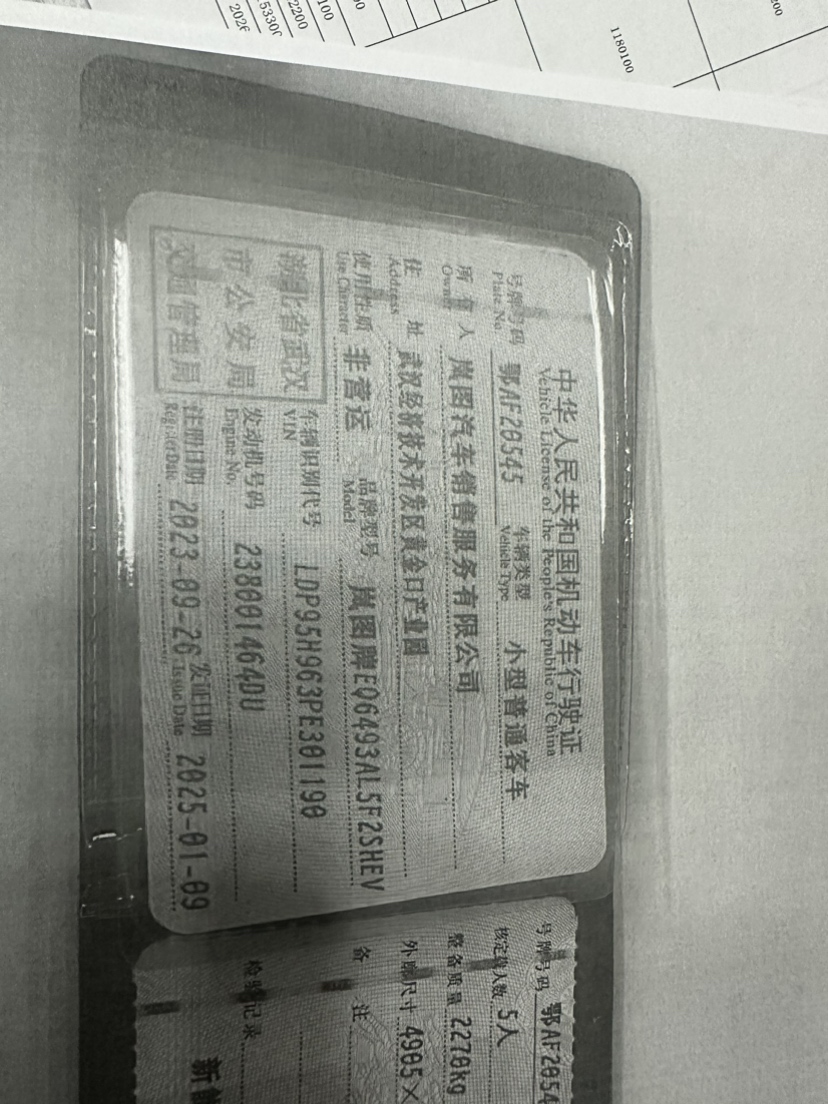 2026
153306
2200
100
00
1180100
200
中华人民共和国机动车行驶证
Vehicle License of the People's Republic of China
号牌号码 鄂AF20545 车辆类型 小型普通客车
Plate No. Vehicle Type
所有人 岚图汽车销售服务有限公司
Owner
住址 武汉经济技术开发区黄金口产业园
Address
使用性质 非营运 品牌型号 岚图牌EQ6493AL5F2SHEV
Use Character Model
湖北省武汉
市公安局
交通管理局
车辆识别代号 LDP95H963PE301190
VIN
发动机号码 238001464DU
Engine No.
注册日期 2023-09-26 发证日期 2025-01-09
Register Date Issue Date
号牌号码 鄂AF2054
核定载人数 5人
整备质量 2270kg
外廓尺寸 4905×
备注
检验记录
新